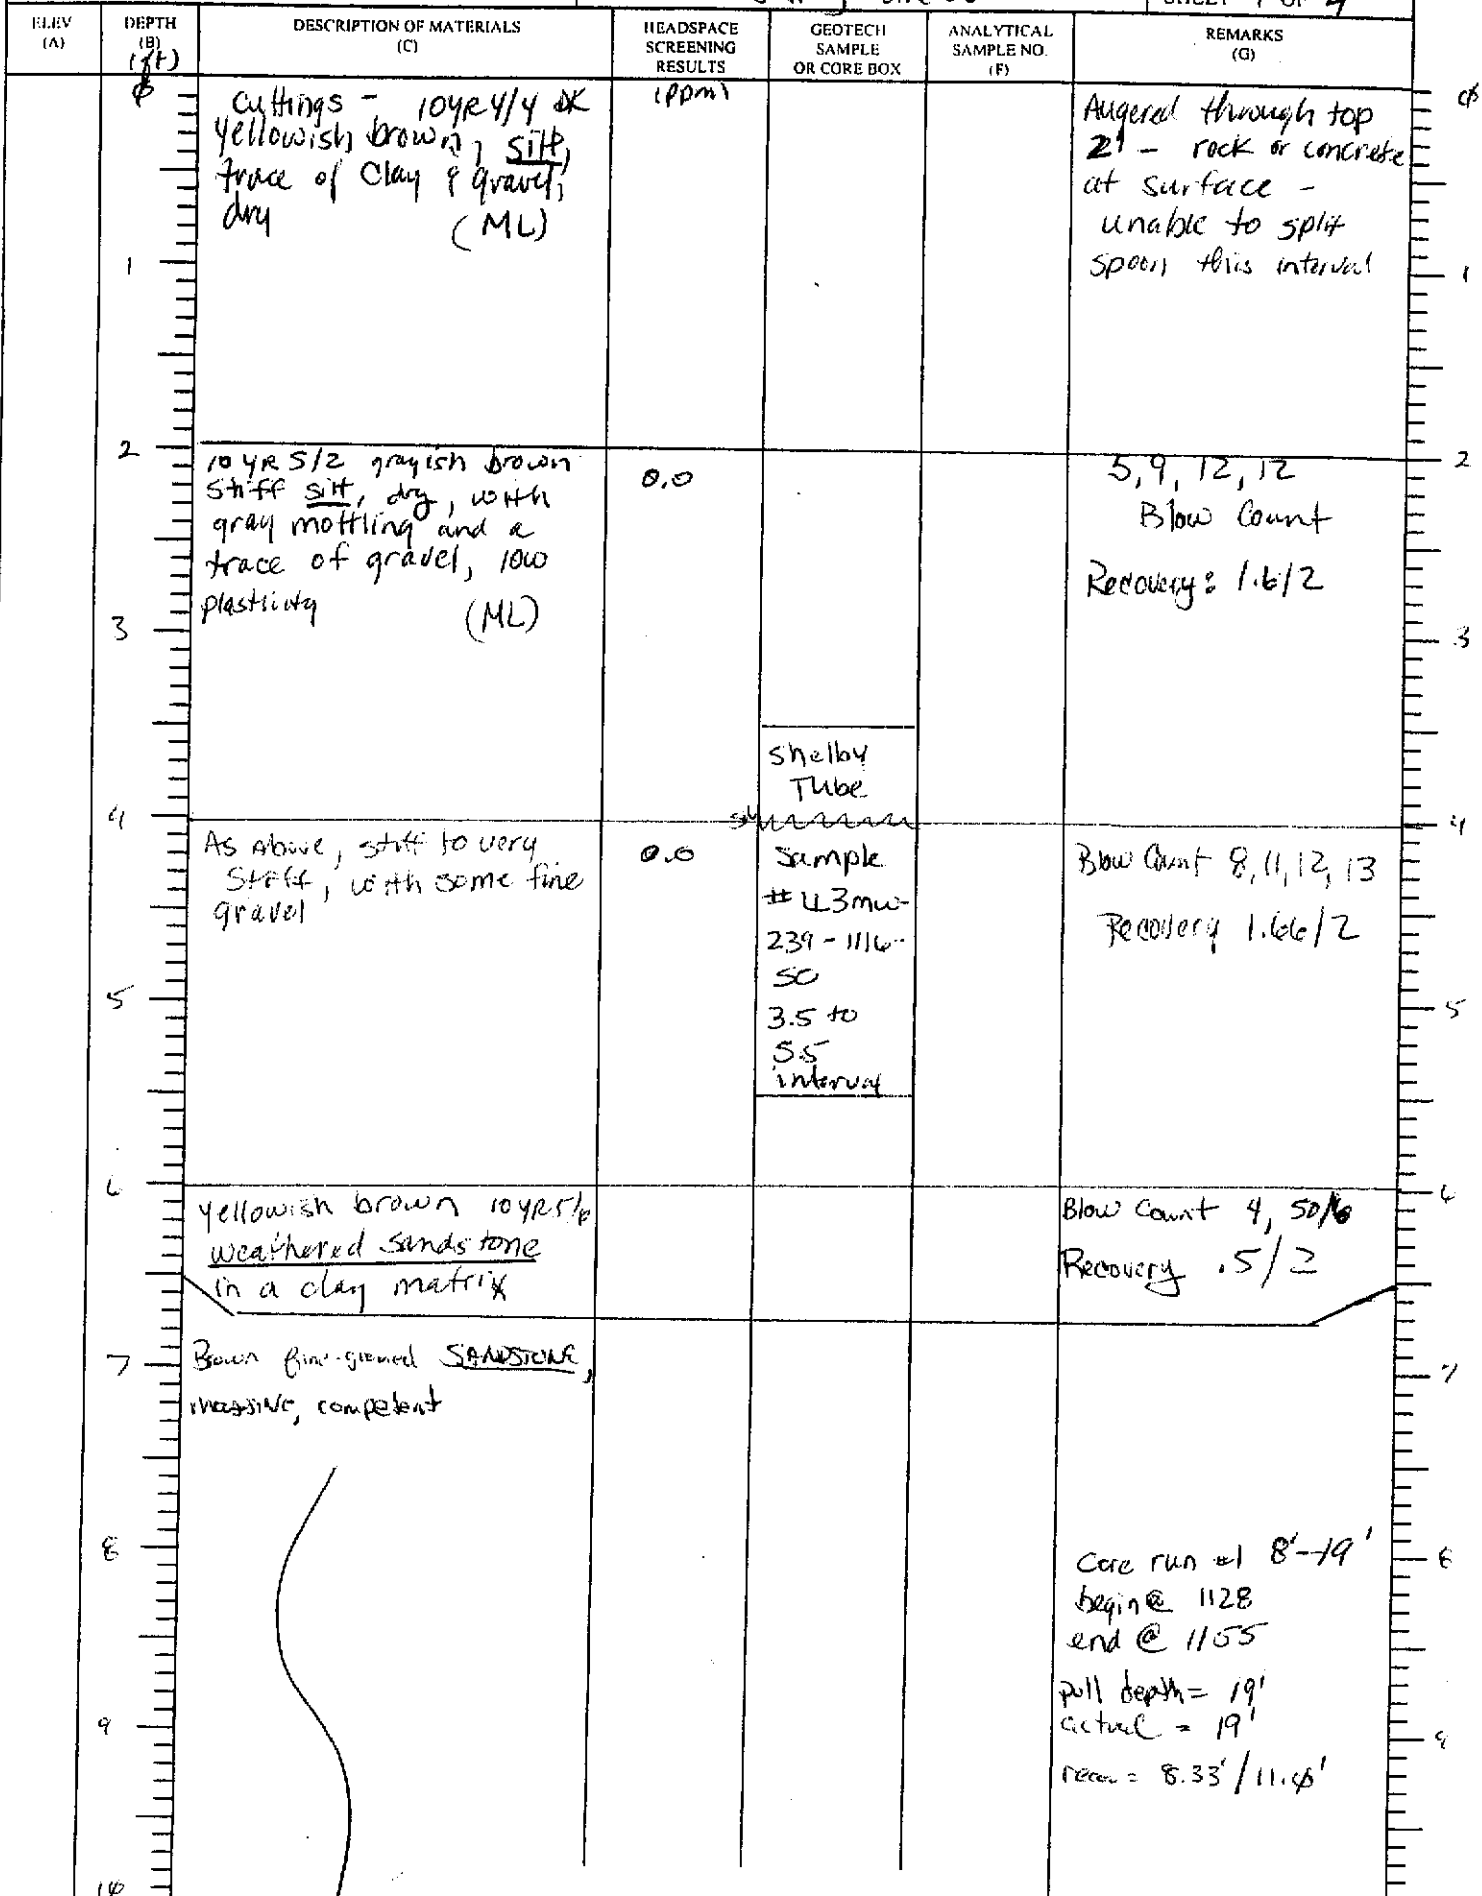 SHEET 1 OF 4
ELEV (A)
DEPTH (B) (ft)
DESCRIPTION OF MATERIALS (C)
HEADSPACE SCREENING RESULTS (ppm)
GEOTECH SAMPLE OR CORE BOX
ANALYTICAL SAMPLE NO. (F)
REMARKS (G)
0
Cuttings - 10YR 4/4 DK
yellowish brown, silt,
trace of clay & gravel,
dry (ML)
Augered through top
2' - rock or concrete
at surface -
unable to split
spoon this interval
0
1
1
2
10YR 5/2 grayish brown
stiff silt, dry, with
gray mottling and a
trace of gravel, low
plasticity (ML)
0.0
5, 9, 12, 12
Blow Count
Recovery: 1.6/2
2
3
3
Shelby
Tube
4
As Above, stiff to very
stiff, with some fine
gravel
0.0
Sample
239-1116-
SO
3.5 to
5.5
interval
Blow Count 8, 11, 12, 13
Recovery 1.66/2
4
5
5
6
yellowish brown 10YR5/6
weathered sandstone
in a clay matrix
Blow Count 4, 50/6
Recovery .5/2
6
7
Brown fine-grained SANDSTONE,
massive, competent
7
8
Core run #1 8'-19'
begin @ 1128
end @ 1155
pull depth = 19'
actual = 19'
8.33' / 11.0'
8
9
9
10